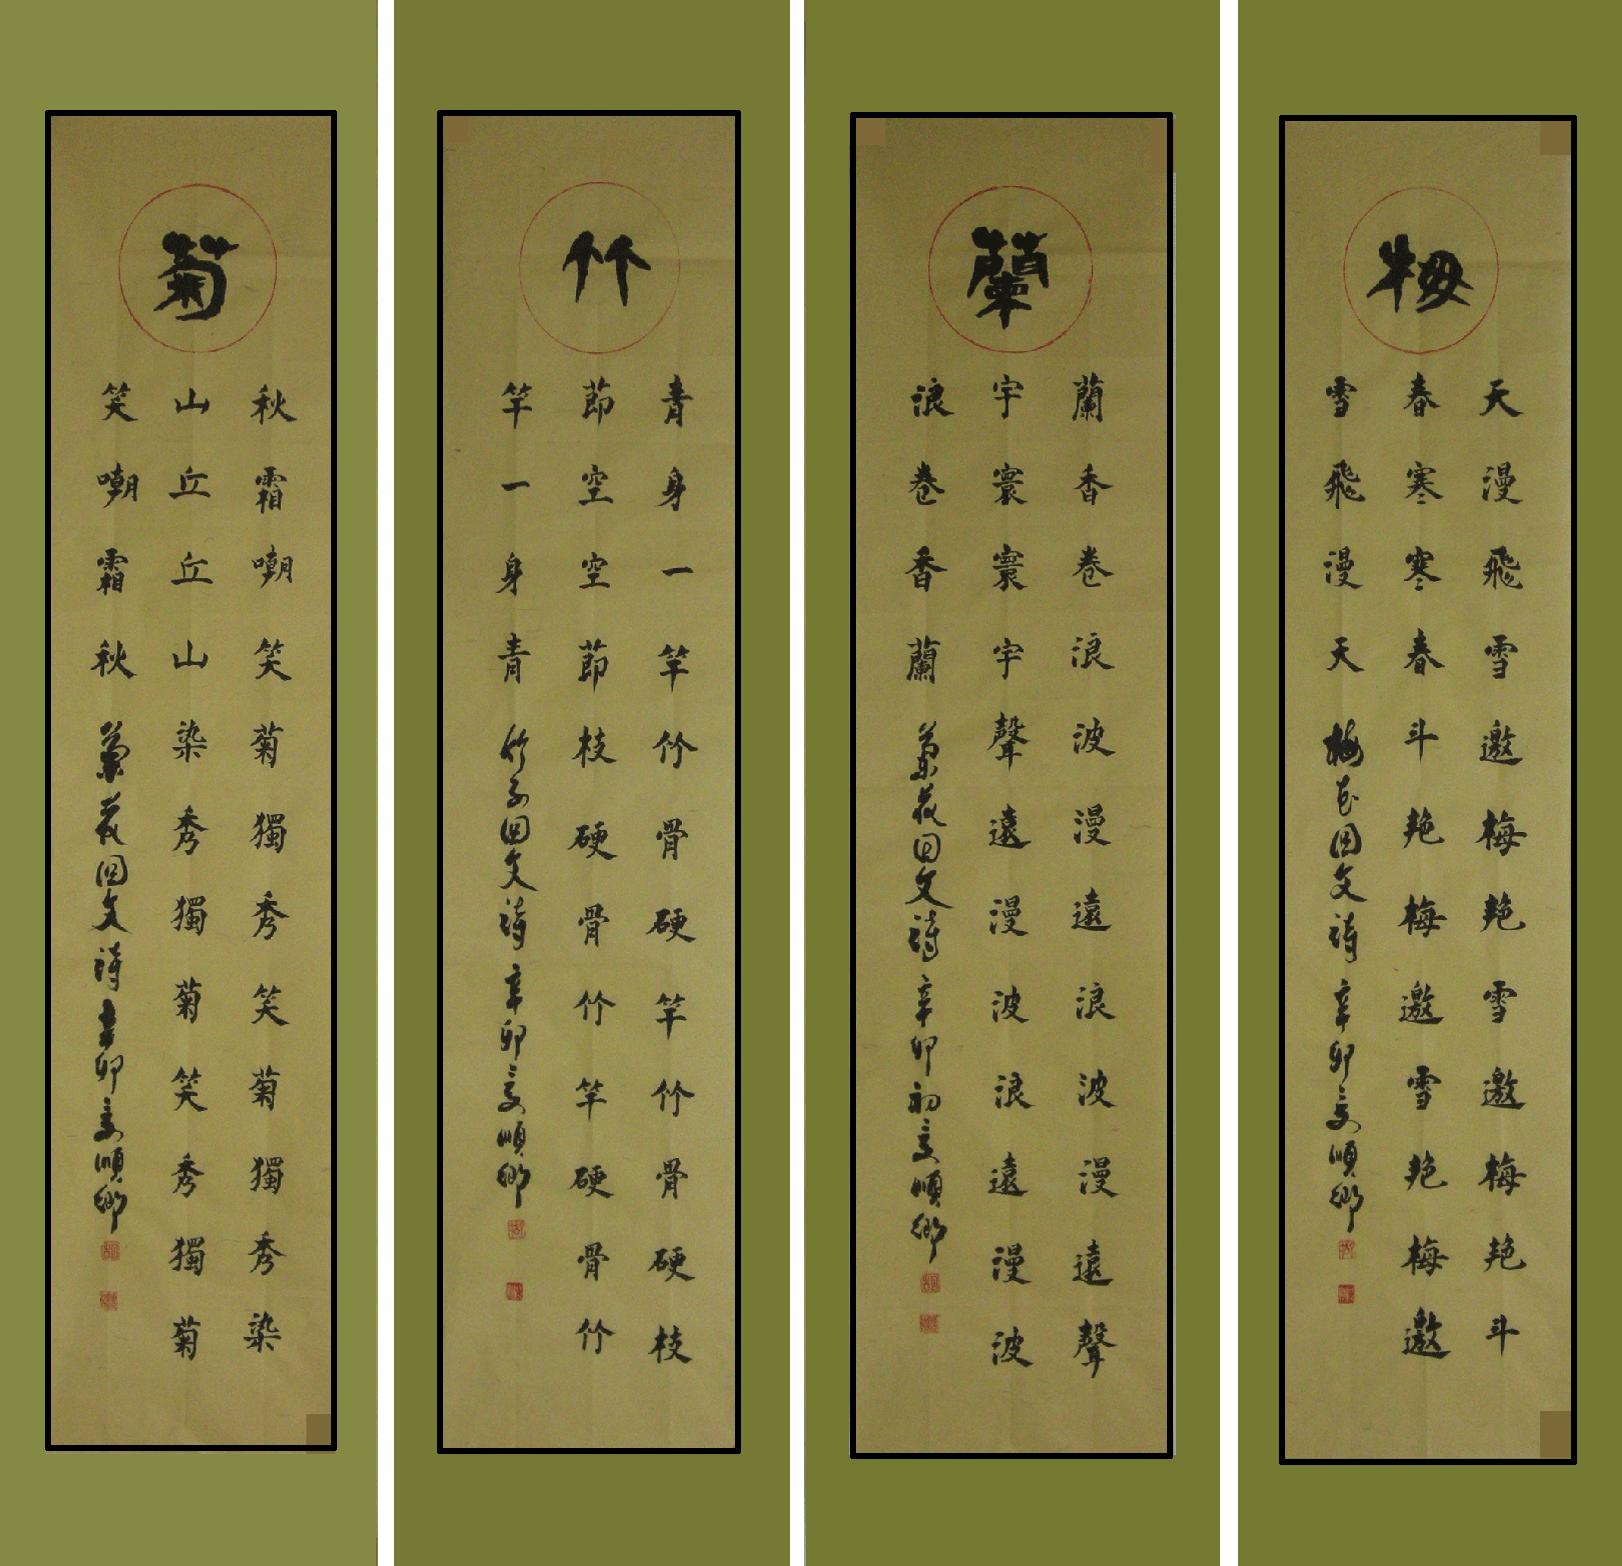 梅
天漫飛雪邀梅艷雪邀梅艷斗
春寒寒春斗艷梅邀雪艷梅邀
雪飛漫天
梅花回文詩 辛卯夏順卿
蘭
蘭香卷浪波漫遠浪波漫遠聲
宇寰寰宇聲遠漫波浪遠漫波
浪卷香蘭
蘭花回文詩 辛卯初夏順卿
竹
青身一竿竹骨硬竿竹骨硬枝
節空空節枝硬骨竹竿硬骨竹
竿一身青
竹子回文詩 辛卯夏順卿
菊
秋霜嘲笑菊獨秀笑菊獨秀染
山丘丘山染秀獨菊笑秀獨菊
笑嘲霜秋
菊花回文詩 辛卯夏順卿